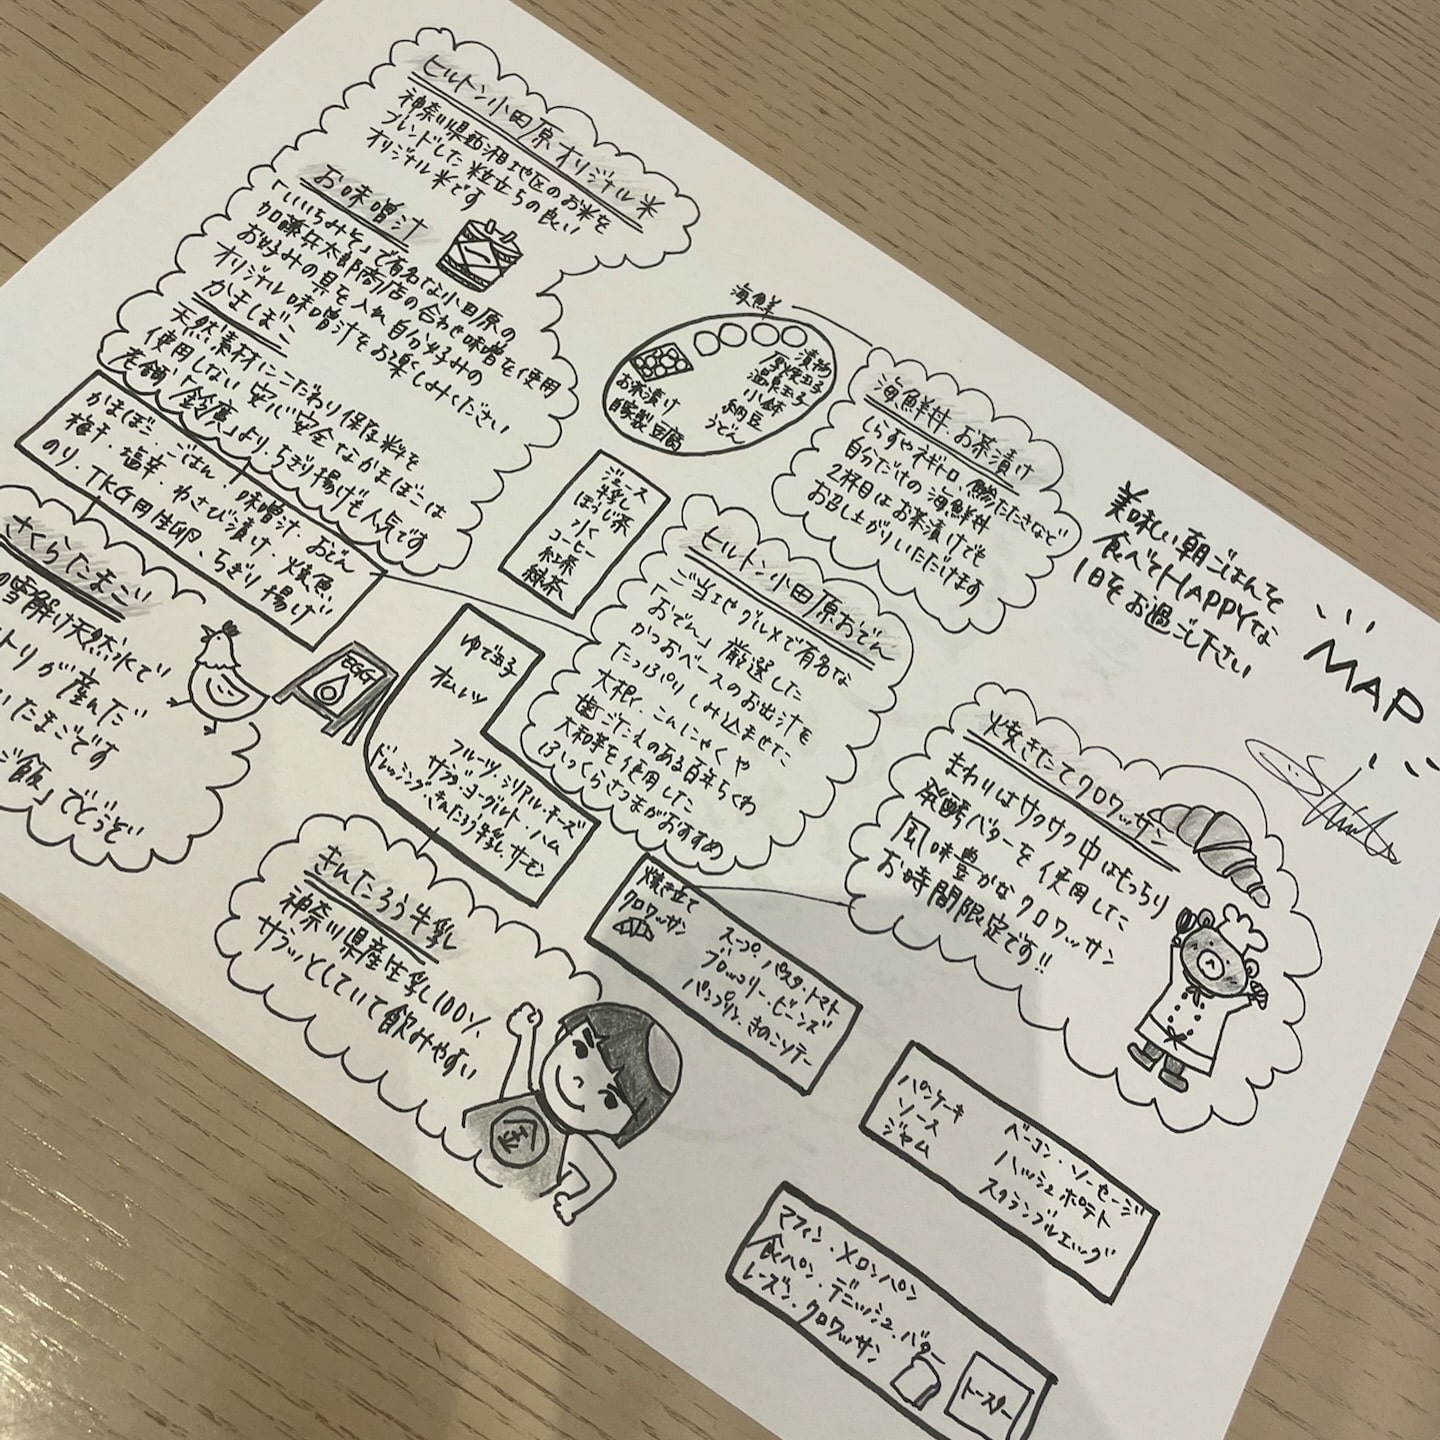 ヒルトン小田原オリジナル米
神奈川県西湘地区のお米を
ブレンドした粒立ちの良い
オリジナル米です
お味噌汁
「いいちみそ」で有名な小田原の
加藤兵太郎商店の合わせ味噌を使用
お好みの具を入れ自分好みの
オリジナル味噌汁をお楽しみください
かまぼこ
天然素材にこだわり保存料を
使用しない安心安全なかまぼこは
老舗「鈴廣」より、ちぎり揚げも人気です
かまぼこ・ごはん・味噌汁・おでん
梅干・塩辛・わさび漬け・焼魚・
のり・TKG用生卵、ちぎり揚げ
さくらたまご
の雪解け天然水で
トリが産んだ
いたまごです
ご飯」でどうぞ
EGG
海鮮
漬物
厚焼玉子
温泉玉子
小鉢
納豆
うどん
お茶漬け
自家製豆腐
ジュース
牛乳
ほうじ茶
水
コーヒー
紅茶
緑茶
海鮮丼・お茶漬け
しらすやネギトロ、鯵たたきなど
自分だけの海鮮丼
2杯目はお茶漬けでも
お召し上がりいただけます
美味しい朝ごはんで
食べてHAPPYな
1日をお過ごし下さい
MAP
ヒルトン小田原おでん
ご当地グルメで有名な
「おでん」厳選した
かつおベースのお出汁を
たっぷりしみ込ませた
大根、こんにゃくや
歯ごたえのある百年ちくわ
大和芋を使用した
ふっくらさつまがおすすめ
ゆで玉子
オムレツ
フルーツ・シリアル・チーズ
サラダ・ヨーグルト・ハム
ドレッシング・きんたろう牛乳・サーモン
きんたろう牛乳
神奈川県産生乳100%
サラッとしていて飲みやすい
金
焼き立て
クロワッサン
スープ・パスタ・トマト
ブロッコリー・ビーンズ
パンプリン・きのこソテー
焼きたてクロワッサン
まわりはサクサク中はもっちり
発酵バターを使用した
風味豊かなクロワッサン
お時間限定です!!
パンケーキ
ソース
ジャム
ベーコン・ソーセージ
ハッシュポテト
スクランブルエッグ
マフィン・メロンパン
食パン・デニッシュ・バター
レーズン・クロワッサン
トースター